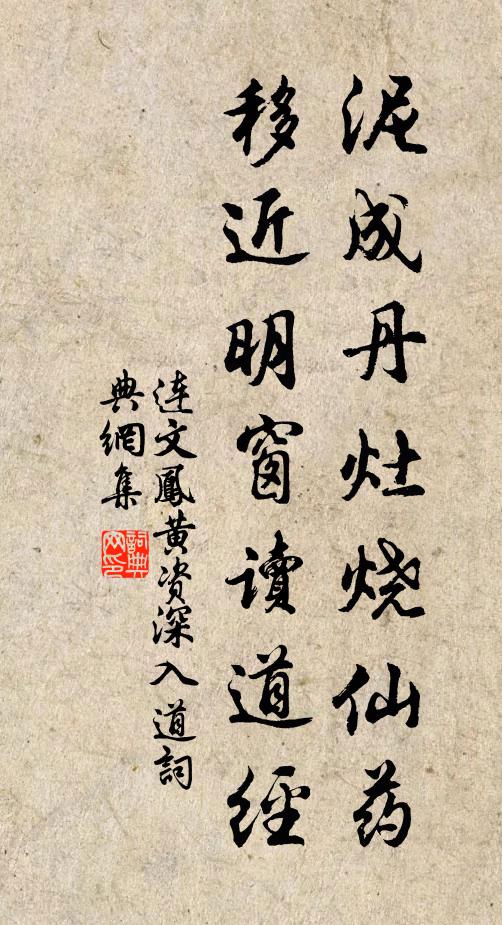 泥成丹灶烧仙药
移近明窗读道經
连文鳳黄资深入道詞
典網集
詞典网印